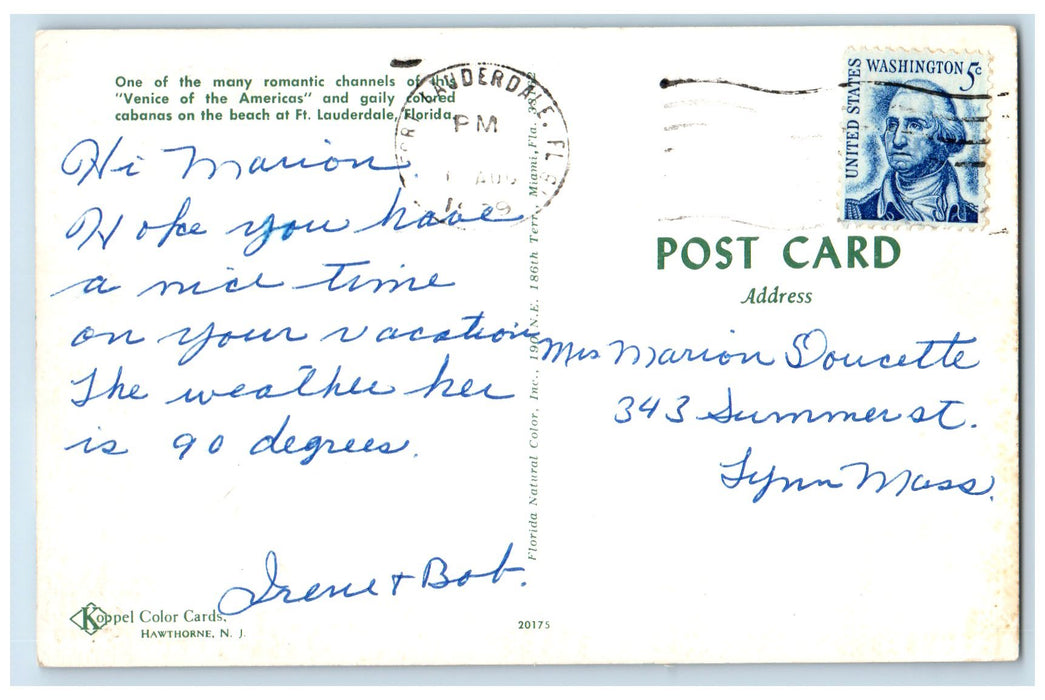 One of the many romantic channels of this
"Venice of the Americas" and gaily colored
cabanas on the beach at Ft. Lauderdale, Florida.
Hi Marion.
Hope you have
a nice time
on your vacation
The weather her
is 90 degrees.
Irene + Bob.
Koppel Color Cards,
HAWTHORNE, N. J.
20175
Florida Natural Color, Inc., 190 N.E. 186th Terr., Miami, Fla.
LAUDERDALE, FL
PM
AUG
UNITED STATES
WASHINGTON 5c
POST CARD
Address
Mrs Marion Doucette
343 Summer st.
Lynn Mass.